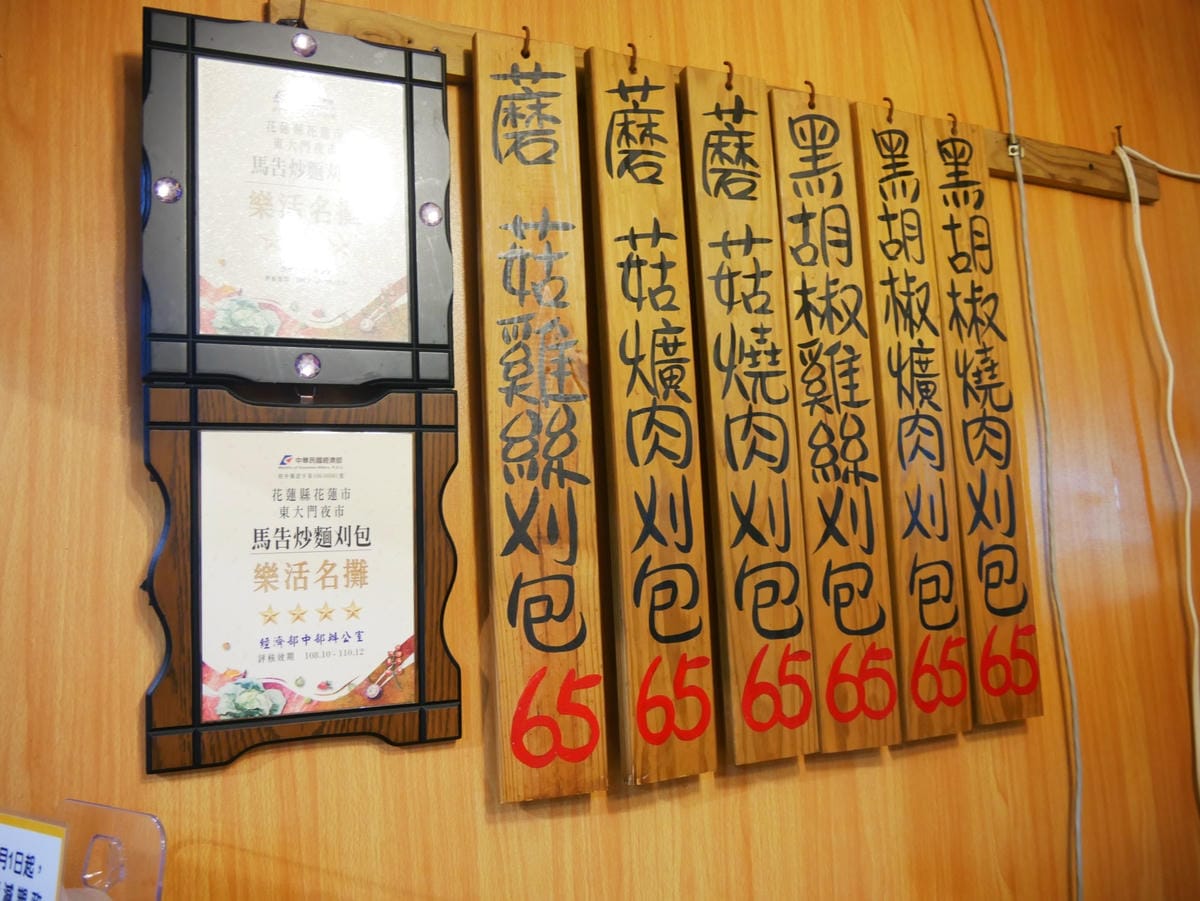 花蓮縣花蓮市
東大門夜市
馬告炒麵刈
樂活名攤
中華民國經濟部
花蓮縣花蓮市
東大門夜市
馬告炒麵刈包
樂活名攤
經濟部中部辦公室
評核效期 108.10 - 110.12
蘑菇雞絲刈包 65
蘑菇爌肉刈包 65
蘑菇燒肉刈包 65
黑胡椒雞絲刈包 65
黑胡椒爌肉刈包 65
黑胡椒燒肉刈包 65
月1日起，